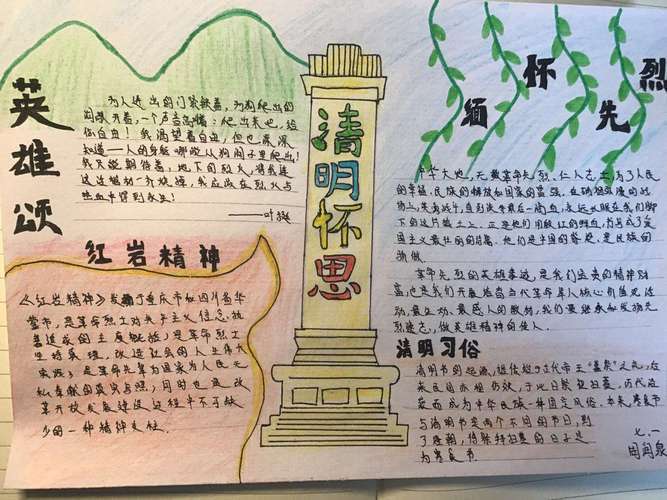 英雄颂
为人进出的门紧锁着，为狗爬出的
洞敞开着，一个声音高叫着：爬出来吧，给
你自由！我渴望着自由，但也深深
知道——人的身躯哪能从狗洞子里爬出！
我只能期待着，地下的烈火，将我连
这活棺材一齐烧掉，我应该在烈火与
热血中得到永生！
——叶挺
红岩精神
《红岩精神》
重庆市和四川省华
蓥市，是革命烈士对共产主义信念执
是革命烈士
改造社会的人生伟大
是革命先辈为国家为人民无
私奉献的真实写照，同时也是改
革开放发展建设过程中不可缺
少的一种精神支柱。
清明怀思
缅怀先烈
中华大地，无数革命先烈、仁人志士，为了人民
的幸福、民族的解放和国家的富强，在硝烟弥漫的战
场上，英勇战斗，直到流尽最后一滴血，永远长眠在我们脚
下的这片热土上。正是他们用殷红的鲜血，
国主义最壮丽的诗篇。他们是中国的脊梁，是民族的
骄傲。
革命先烈的英雄事迹，是我们宝贵的精神财
富，也是我们开展培育当代革命军人核心价值观活
动，最生动、最感人的教材，我们要继承和发扬先
烈遗志，做英雄精神的传人。
清明习俗
清明节的起源，据传始于古代帝王“墓祭”之礼，后
来民间亦相仿效，于此日祭祖扫墓，历代沿
袭而成为中华民族一种固定风俗。本来，寒食节
与清明节是两个不同的节日，到
了唐朝，将祭拜扫墓的日子定
为寒食节
七.一